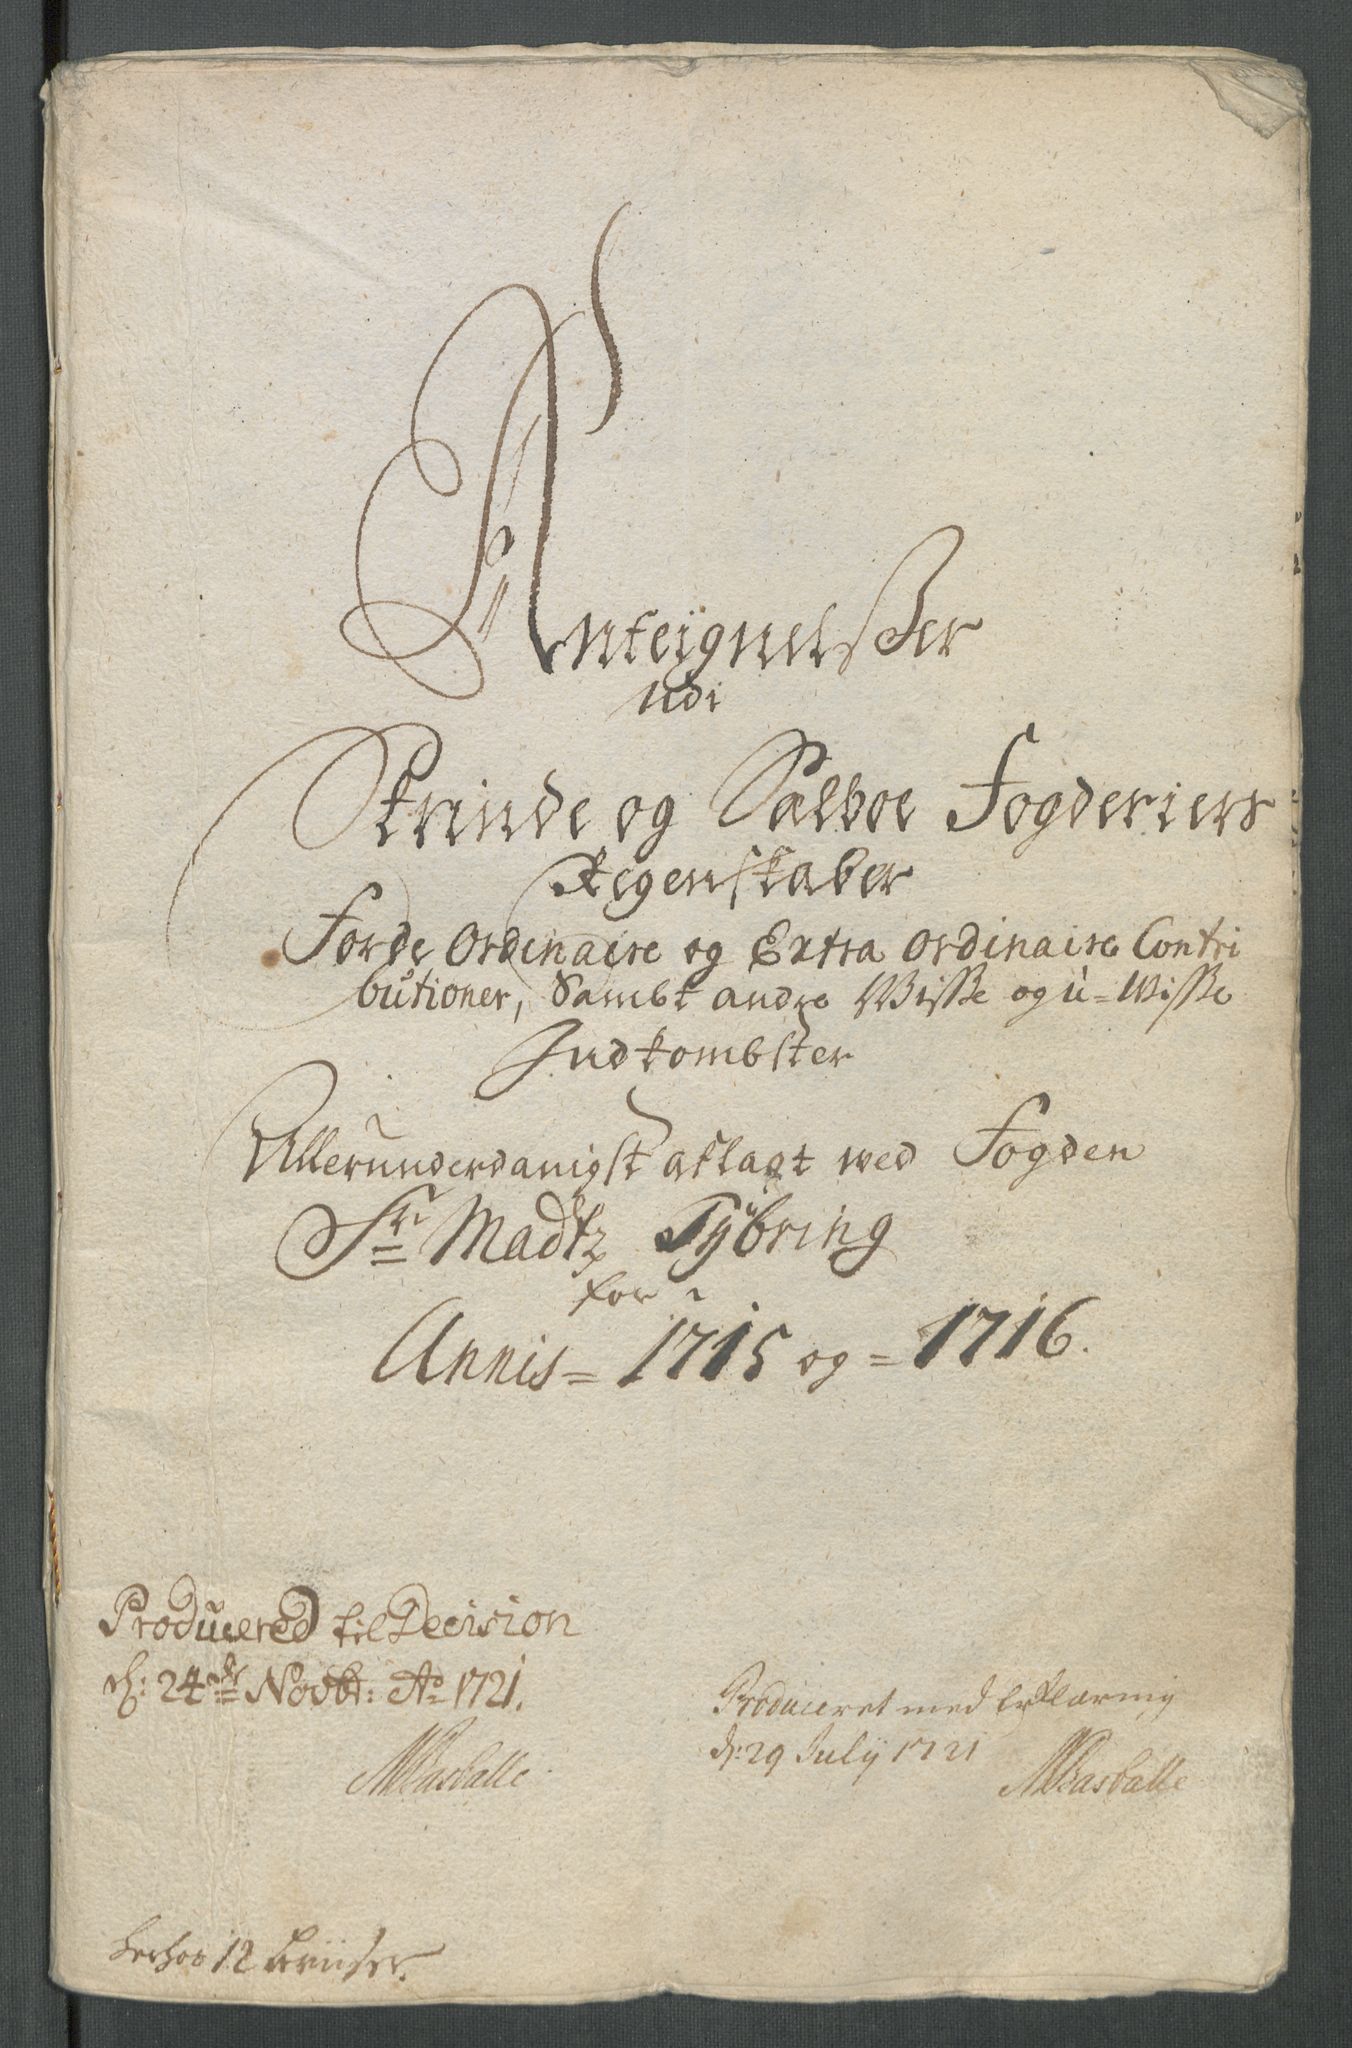 Anteignelßer
udi
Strinde og Sælboe Fogderiers
Regenskaber
For de Ordinaire og Extra Ordinaire Contri
butioner, Sambt andre Wisse og u-Wisse
Indkombster
Allerunderdanigst aflagt ved Fogden
Sr Madtz Tÿbring
for
Annis = 1715 og = 1716.
Producered til Decision
d: 24de Novbr: Ao 1721.
Produceret med Erklaring
d: 29 Julÿ 1721
Basballe
Basballe
herhos 12